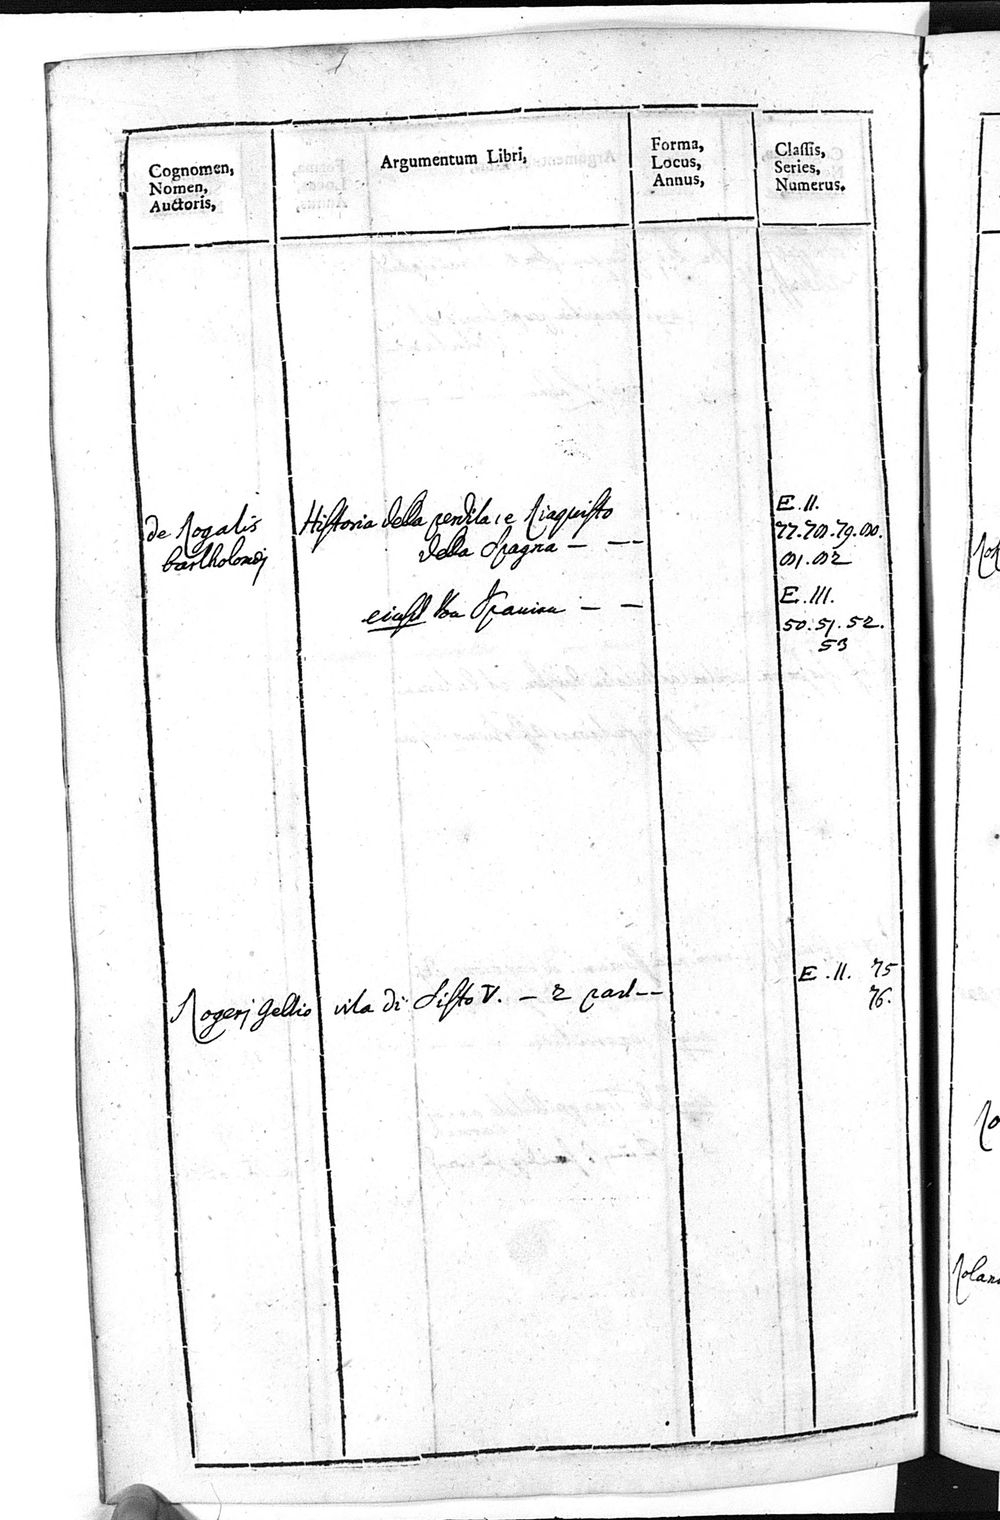 Cognomen,
Nomen,
Auctoris,
Argumentum Libri,
Forma,
Locus,
Annus,
Classis,
Series,
Numerus.
de Rogatis
bartholomej
Historia della perdita, e Riaquisto
della Spagna — — —
E. II.
77. 78. 79. 80.
81. 82
eiusd
E. III.
50. 51. 52.
53
Rogerj Gellio
vita di Sisto V. — 2 part — —
E. II. 75
76.